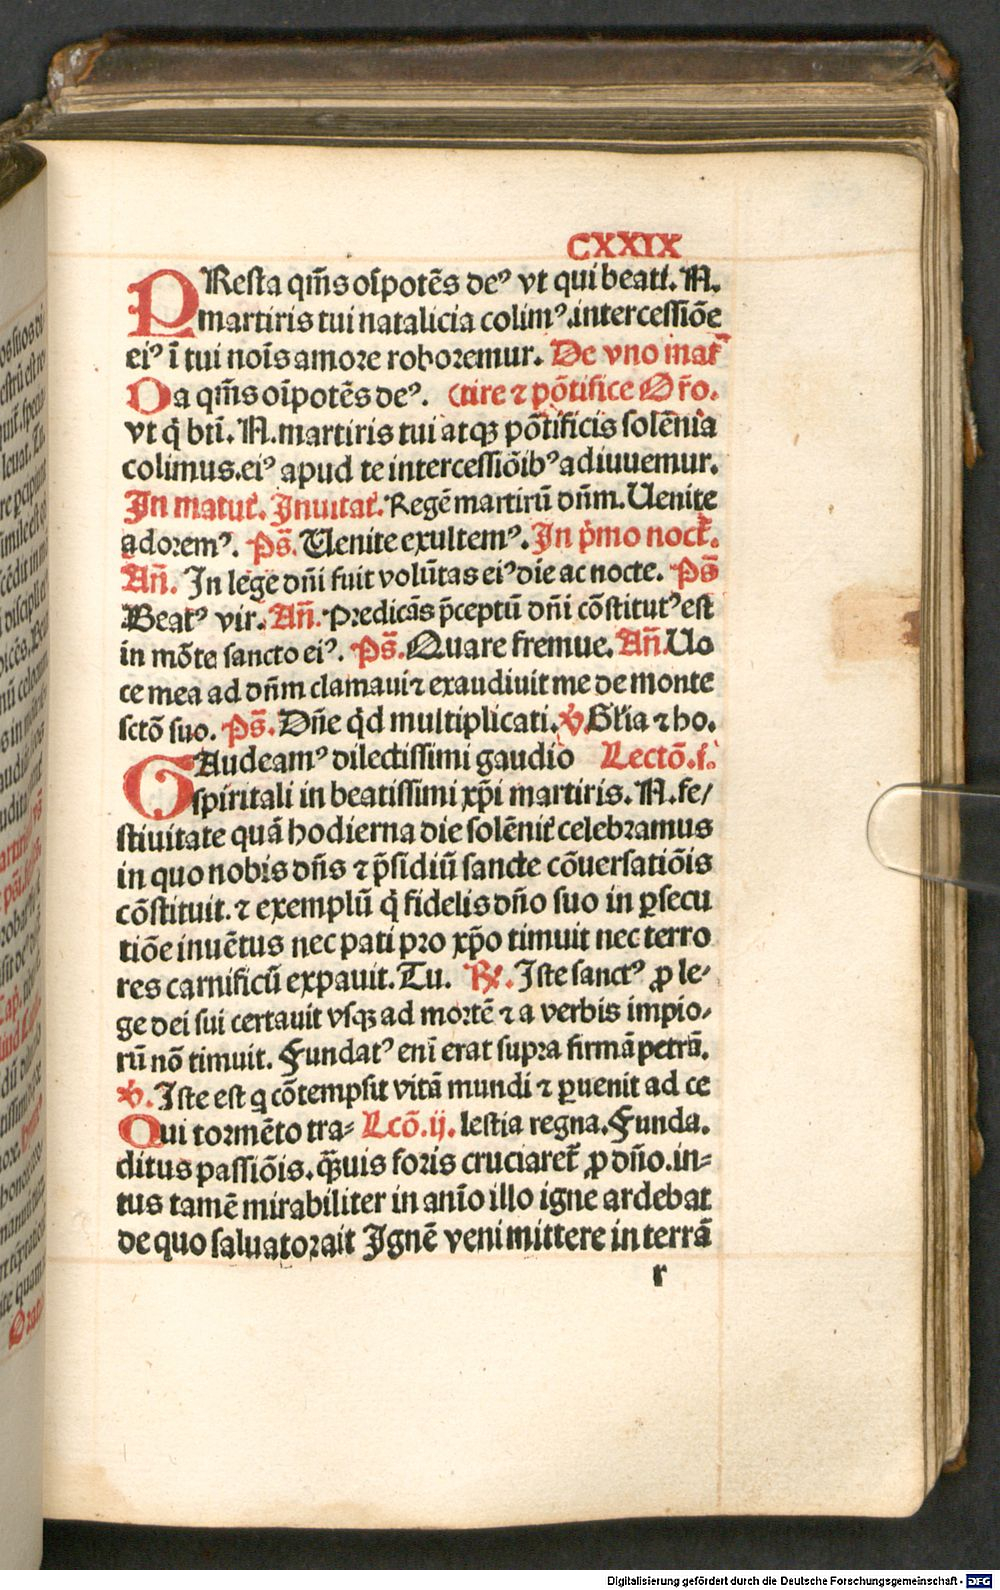 CXXIX
PResta qm̄s oi̅potēs deꝰ vt qui beati. N.
martiris tui natalicia colimꝰ.intercessiōe
eiꝰ ī tui nois̄ amore roboremur. De vno mar̄
Da qm̄s oi̅potēs deꝰ. (tire ⁊ pōtifice Or̄o.
vt q̇ bti̅. N.martiris tui atqꝫ pōtificis solēnia
colimus.eiꝰ apud te intercessiōibꝰ adiuuemur.
In matut̄. Inuitat̄. Regē martirū dn̄m. Uenite
adoremꝰ. Ps̄. Uenite exultemꝰ. In p̄mo noct̄.
An̄. In lege dn̄i fuit volūtas eiꝰ die ac nocte. Ps̄
Beatꝰ vir. An̄. Predicās p̄ceptū dn̄i cōstitutꝰ est
in mōte sancto eiꝰ. Ps̄. Quare fremue. An̄. Uo
ce mea ad dn̄m clamaui ⁊ exaudiuit me de monte
sctō suo. Ps̄. Dn̄e qd̄ multiplicati. ℣. Gl̄ia ⁊ ho.
GAudeamꝰ dilectissimi gaudio Lectō.i.
spiritali in beatissimi xp̄i martiris. N. fe/
stiuitate quā hodierna die solēnit̄ celebramus
in quo nobis dn̄s ⁊ p̄sidiū sancte cōuersatiōis
cōstituit. ⁊ exemplū q̇ fidelis dn̄o suo in ꝑsecu
tiōe inuētus nec pati pro xp̄o timuit nec terro
res carnificū expauit. Tu. ℟. Iste sanctꝰ ꝓ le-
ge dei sui certauit vsqꝫ ad mortē ⁊ a verbis impio-
rū nō timuit. Fundatꝰ eni̅ erat supra firmā petrā.
℣. Iste est q cōtempsit vitā mundi ⁊ ꝑuenit ad ce
Qui tormēto tra= Lcō.ij. lestia regna. Funda.
ditus passiōis. qꝫuis foris cruciaret̄ ꝓ dn̄o.in=
tus tamē mirabiliter in ani̅o illo igne ardebat
de quo saluator ait Ignē veni mittere in terrā
r
Digitalisierung gefördert durch die Deutsche Forschungsgemeinschaft - DFG